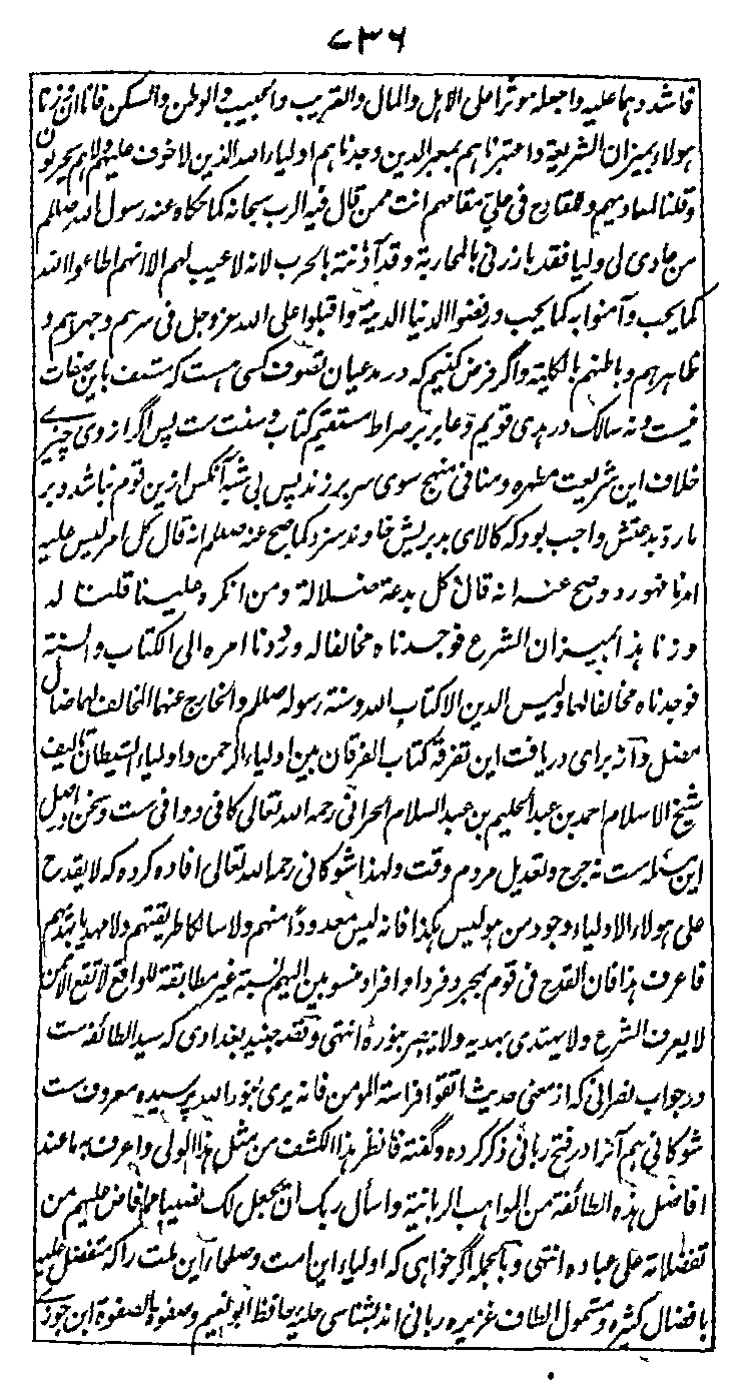 ۷۳۶
فاشدد بهما علیه واجعله موثرا علی الاهل والمال والقریب والحبیب والوطن والسکن فانا ان وزنا
هولاء بمیزان الشریعة واعتبرناهم بمعبر الدین وجدناهم اولیاء الله الذین لا خوف علیهم ولا هم یحزنون
وقلنا لمعادیهم وللقادح فی علی مقامهم انت ممن قال فیه الرب سبحانه کما حکاه عنه رسول الله صللم
من عادی لی ولیا فقد بارزنی بالمحاربة وقد آذنته بالحرب لانه لا عیب لهم الا انهم اطاعوا الله
کما یحب وآمنوا به کما یحب ورفضوا الدنیا الدنیة واقبلوا علی الله عز وجل فی سرهم وجهرهم و
ظاهرهم وباطنهم بالکلیة واگر فرض کنیم که در مدعیان تصوف کسی هست که متصف باین صفات
نیست ونه سالک در هدی قویم وعابر بر صراط مستقیم کتاب وسنت ست پس اگر از وی چیزے
خلاف این شریعت مطهره ومنافی منهج سوی سر برزند پس بی شبه آنکس ازین قوم نباشد وبر
ما رد بدعتش واجب بود که کالای بد بریش خاوند سزد کما صح عنه صللم انه قال کل امر لیس علیه
امرنا فهو رد وصح عنه انه قال کل بدعة ضلالة ومن انکر علینا قلنا له
وزنا هذا بمیزان الشرع فوجدناه مخالفا له ورددنا امره الی الکتاب والسنة
فوجدناه مخالفا لها ولیس الدین الا کتاب الله وسنة رسوله صللم والخارج عنها المخالف لها ضال
مضل وآنه برای دریافت این تفرقه کتاب الفرقان بین اولیاء الرحمن واولیاء الشیطان تالیف
شیخ الاسلام احمد بن عبد الحلیم بن عبد السلام الحرانی رحمه الله تعالی کافی ووافی ست وسخن در اصل
این مسئله ست نه جرح وتعدیل مردم وقت ولهذا شوکانی رحمه الله تعالی افاده کرده که لا یقدح
علی هولاء الاولیاء وجود من هو لیس هکذا فانه لیس معدودا منهم ولا سالکا طریقتهم ولا مهدیا بهدیهم
فاعرف هذا فان القدح فی قوم بمجرد فرد او افراد منسوبین الیهم نسبة غیر مطابقة للواقع لا تقع الا ممن
لا یعرف الشرع ولا یهتدی بهدیه ولا یبصر بنوره انتهی وقصه جنید بغدادی که سید الطائفه ست
در جواب نصرانی که از معنی حدیث اتقوا فراسة المومن فانه یری بنور الله پرسیده معروف ست
شوکانی هم آنرا در فتح ربانی ذکر کرده وگفته فانظر هذا الکشف من مثل هذا الولی واعرف به ما عند
افاضل هذه الطائفة من المواهب الربانیة واسأل ربک ان یجعل لک نصیبا مما افاض علیهم من
تفضلاته علی عباده انتهی وبالجمله اگر خواهی که اولیاء این امت وصلحاء این ملت را که متفضل علیه
بافضال کثیره ومشمول الطاف غزیره ربانی اند بشناسی حلیه حافظ ابو نعیم وصفوة الصفوة ابن جوزے